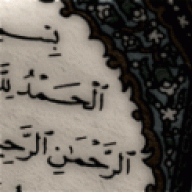 بِسْمِ
ٱلْحَمْدُ لِلَّهِ
ٱلرَّحْمَٰنِ ٱلرَّحِيمِ